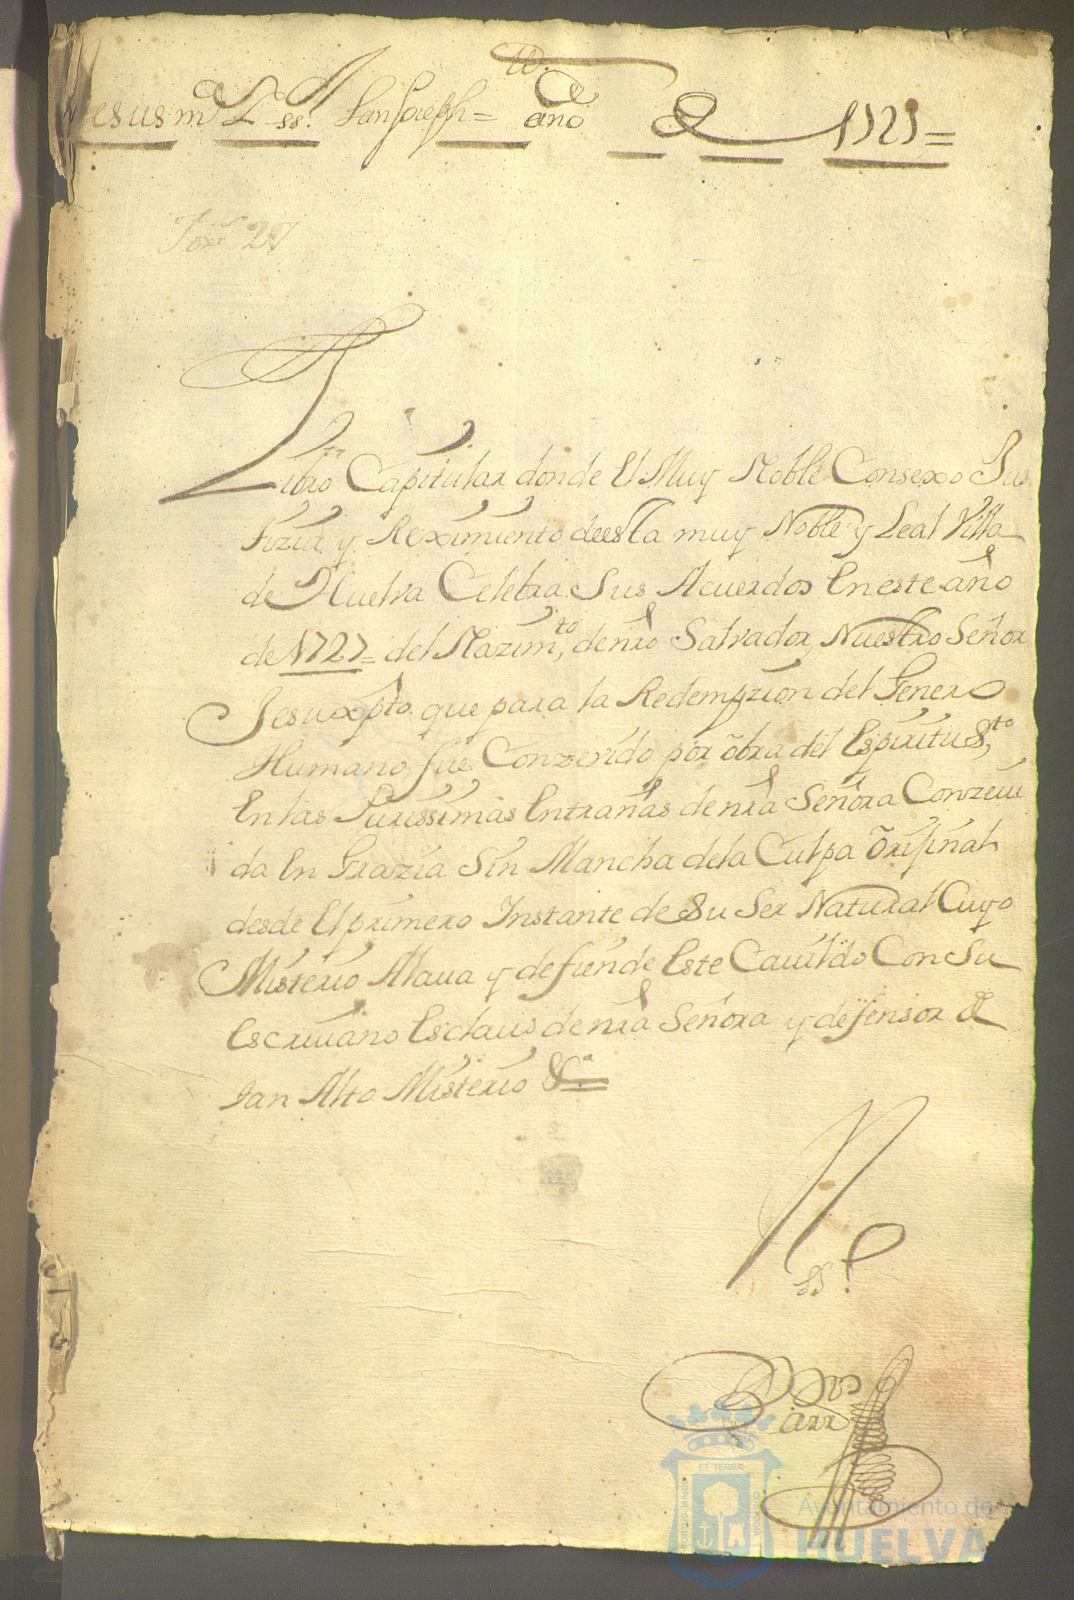 Jesus m.ª ss.ª San Joseph = año de 1727 =
For.s 27
Libro Capitular donde El Muy Noble Consexo Jus
tizia y Reximiento deesta muy Noble y Leal Villa
de Huelva Celebra Sus Acuerdos En este año
de 1727 = del Nazim.to de nro Salvador, Nuestro Señor
Jesuxpto que para la Redempzion del Genero
Humano fue Conzevido por obra del Espiritu S.to
En las Purissimas Entrañas de nra Señora Conzevi
da En Grazia Sin Mancha dela Culpa Orijinal
desde El primero Instante de Su Ser Natural Cuyo
Misterio Alava y defiende Este Cavildo Con Su
Escrivano Esclavo de nra Señora y defensor de
tan Alto Misterio &.ª
ET TERRÆ
PORTUS MARIS
CUSTODIA
Ayuntamiento de
HUELVA